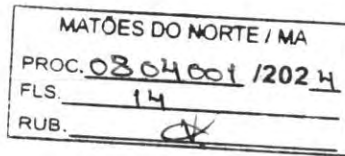 MATÕES DO NORTE / MA
PROC. 0804001 /2024
FLS. 14
RUB.